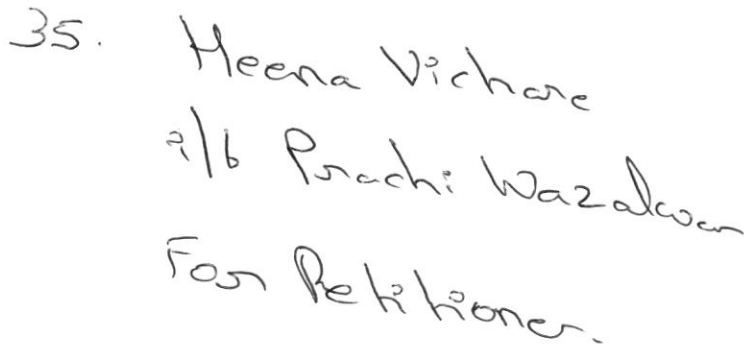 35. Heena Vichare
i/b Prachi Wazalwar
For Petitioner.